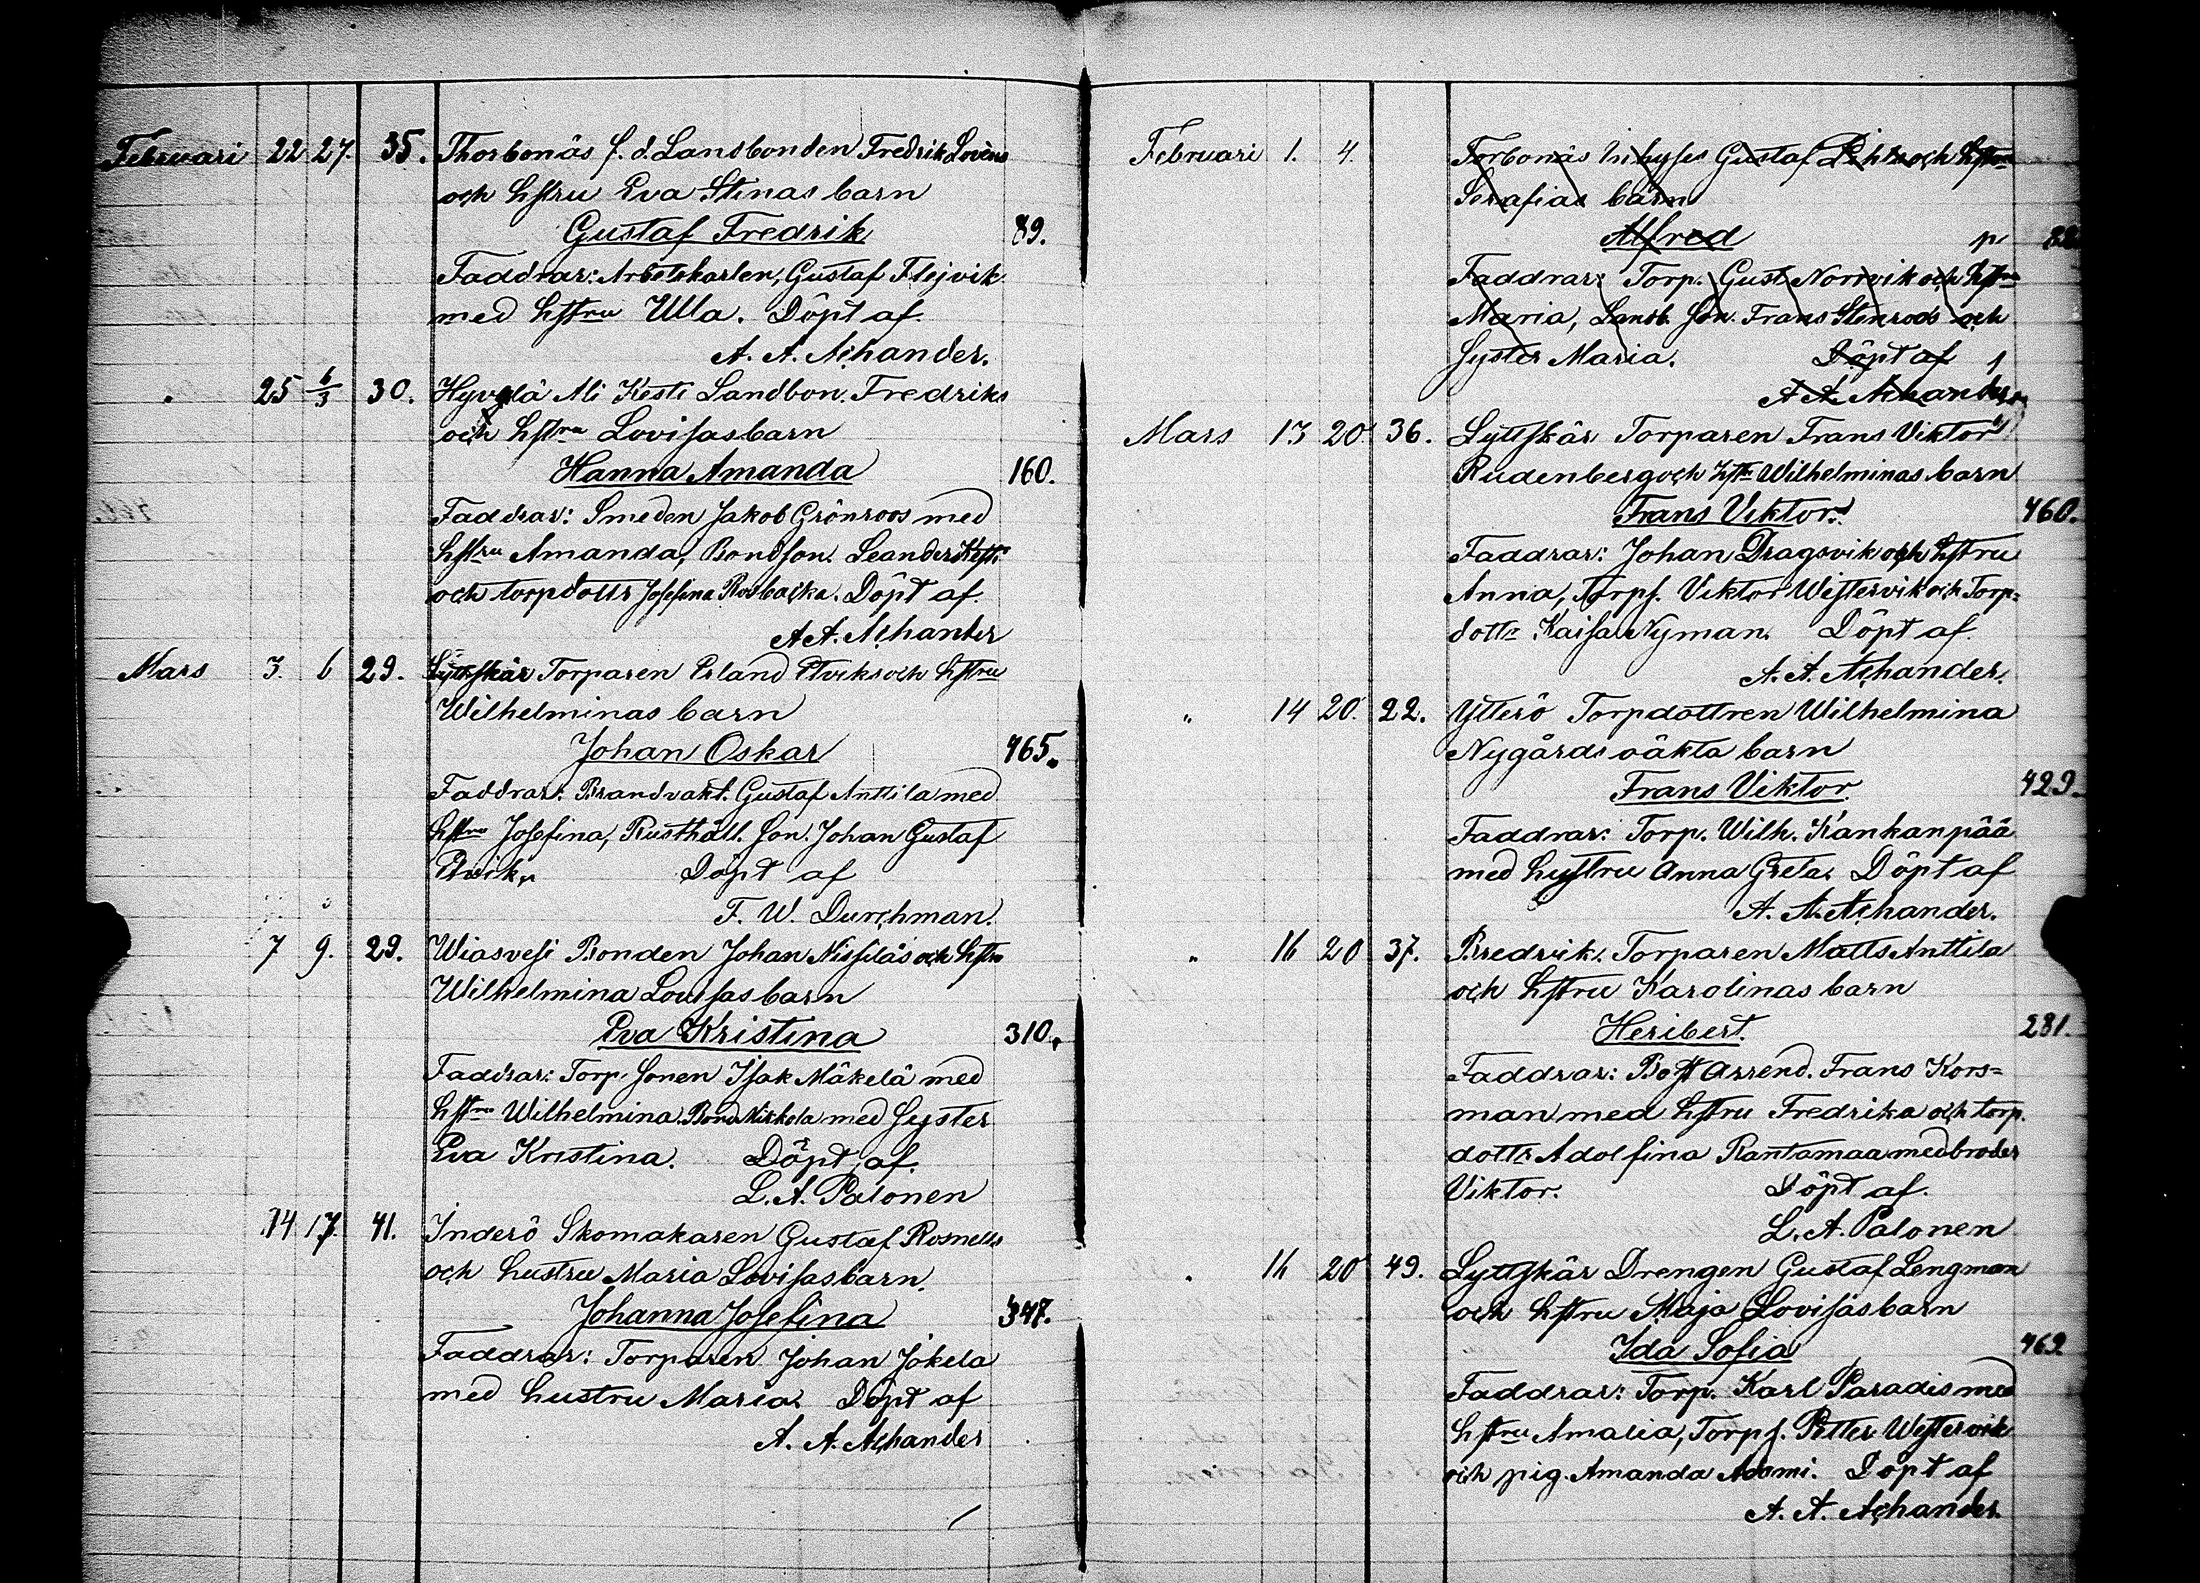 Februari 22 27. 35. Thorbonäs f. d. Landbonden Fredrik Lovéns
och hstru Eva Stinas barn
Gustaf Fredrik 89.
Faddrar: Arbetskarlen, Gustaf Flejvik
med hstru Ulla. Döpt af
A. A. Achander.
" 25 6/3 30. Hyvelä Ali Kesti Landbon. Fredriks
och hstru Lovisas barn
Hanna Amanda 160.
Faddrar: Smeden Jakob Grönroos med
hstru Amanda, Bondson. Leander Kesti
och torpdottr Josefina Rosbacka. Döpt af
A A. Achander
Mars 3. 6 29. Lyttskär Torparen Erland Etviks och hstru
Wilhelminas barn
Johan Oskar 465.
Faddrar: Brandvakt. Gustaf Anttila med
hstru Josefina, Rusthåll. son. Johan Gustaf
Etvik. Döpt af
F. W. Durchman.
7 9. 29. Wiasvesi Bonden Johan Nissiläs och hstru
Wilhelmina Lovisas barn
Eva Kristina 310.
Faddrar: Torp. sonen Isak Mäkelä med
hstru Wilhelmina. Bond med syster
Eva Kristina. Döpt af
L. A. Palonen
14 17. 41. Inderö Skomakaren Gustaf Rosnells
och hustru Maria Lovisas barn
Johanna Josefina 347.
Faddrar: Torparen Johan Jokela
med hustru Maria. Döpt af
A. A. Achander
Februari 1. 4. Torbonäs Inhyses Gustaf och hstru
Serafias barn
Alfred
Faddrar: Torp. Gust Norrvik och hstru
Maria, Landb. son. Frans Stenroos och
syster Maria. Döpt af
A A. Achander
Mars 13 20. 36. Lyttskär Torparen Frans Viktor
Rudenberg och hstr Wilhelminas barn
Frans Viktor. 460.
Faddrar: Johan Dragsvik och hstru
Anna, Torps. Viktor Westervik och Torp=
dottr Kaisa Nyman. Döpt af
A. A. Achander.
" 14 20. 22. Ytterö Torpdottren Wilhelmina
Nygårds oäkta barn
Frans Viktor 429.
Faddrar: Torp. Wilh. Kankanpää
med hustru Anna Greta. Döpt af
A. A. Achander.
" 16 20 37. Bredvik. Torparen Matts Anttila
och hstru Karolinas barn
Heribert. 281.
Faddrar: Bost arrend. Frans Kors=
man med hstru Fredrika och torp.
dottr Adolfina Rantamaa med broder
Viktor. Döpt af
L. A. Palonen
" 16 20 49. Lyttskär Drengen Gustaf Lengman
och hstru Maja Lovisas barn
Ida Sofia 469
Faddrar: Torp. Karl Paradis med
hstru Amalia, Torps. Petter Westervik
och pig. Amanda Adami. Döpt af
A. A. Achander.